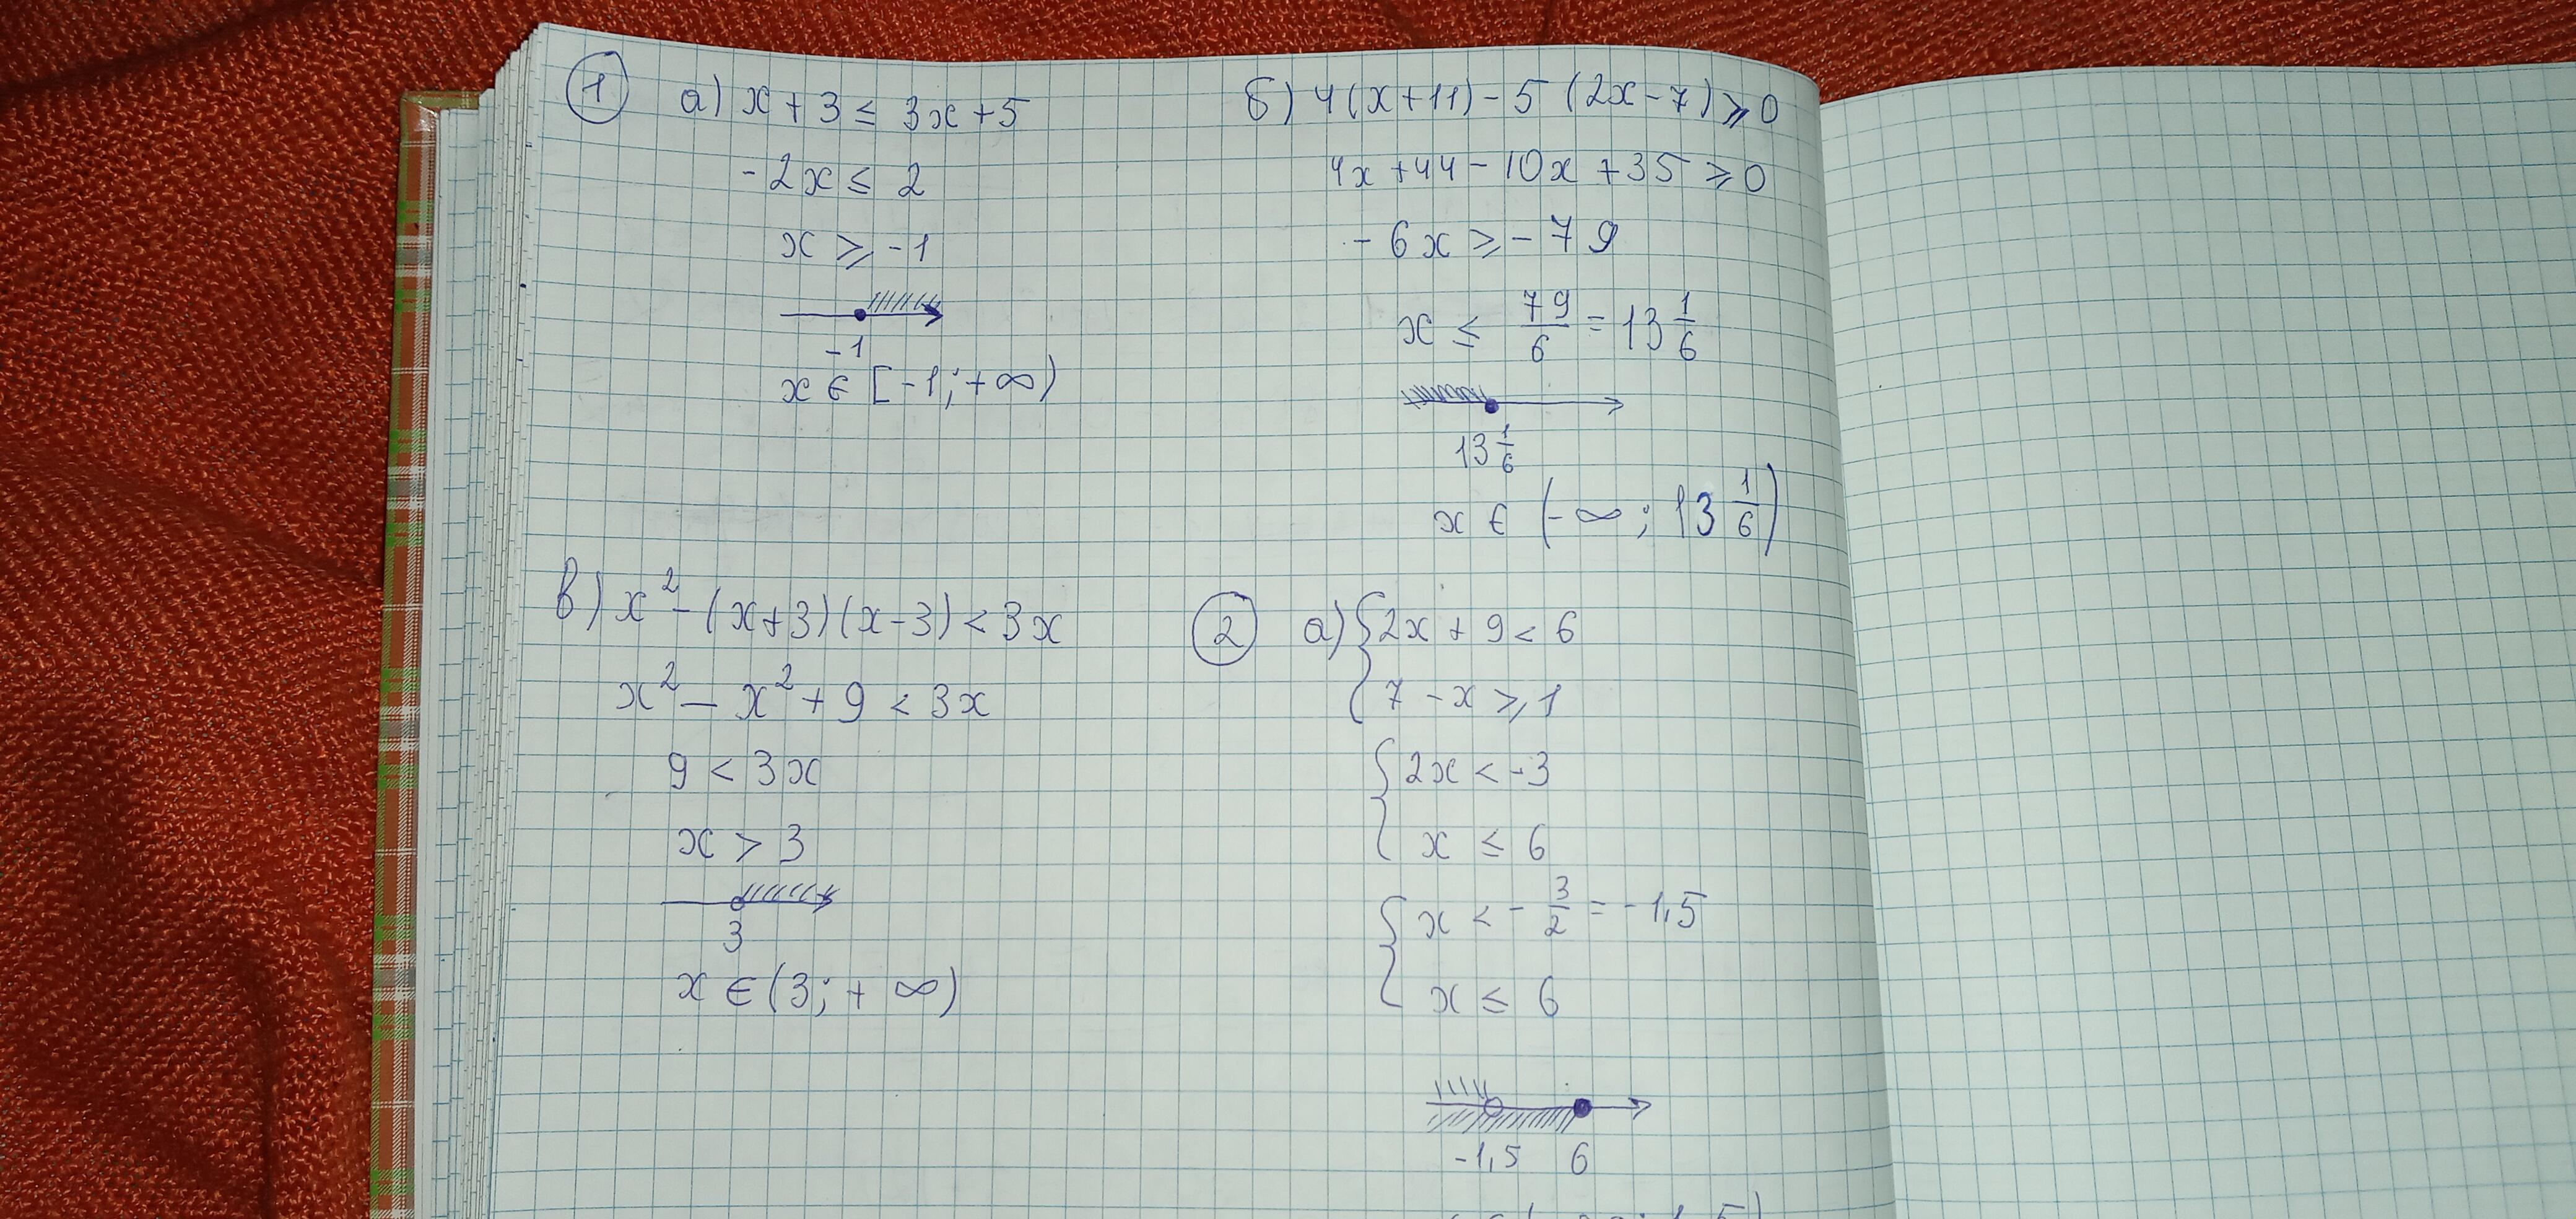 ① а) x + 3 ≤ 3x + 5
-2x ≤ 2
x ≥ -1
-1
x ∈ [-1; +∞)
б) 4(x+11) - 5(2x-7) ≥ 0
4x + 44 - 10x + 35 ≥ 0
-6x ≥ -79
x ≤ 79/6 = 13 1/6
13 1/6
x ∈ (-∞; 13 1/6)
в) x² - (x+3)(x-3) < 3x
x² - x² + 9 < 3x
9 < 3x
x > 3
3
x ∈ (3; +∞)
② а) { 2x + 9 < 6
7 - x ≥ 1
{ 2x < -3
x ≤ 6
{ x < -3/2 = -1,5
x ≤ 6
-1,5 6